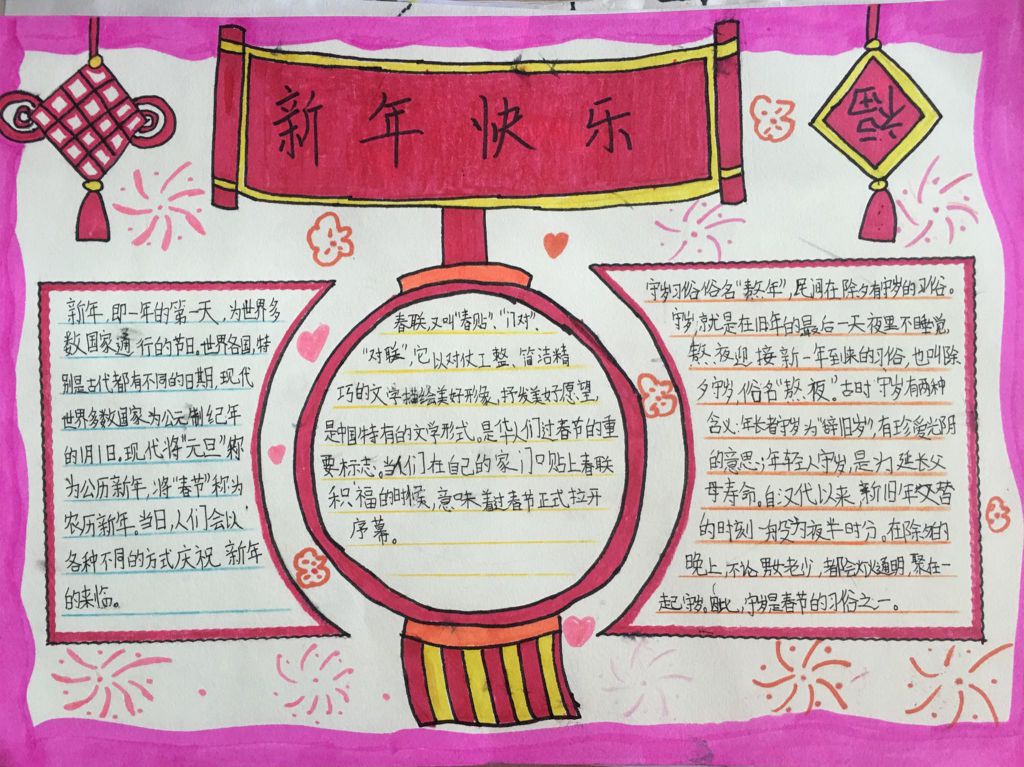 新年快乐
福
新年,即一年的第一天,为世界多
数国家通行的节日。世界各国,特
别是古代都有不同的日期,现代
世界多数国家为公元制纪年
的1月1日。现代将“元旦”称
为公历新年,将“春节”称为
农历新年。当日,人们会以
各种不同的方式庆祝新年
的来临。
春联,又叫“春贴”、“门对”、
“对联”,它以对仗工整、简洁精
巧的文字描绘美好形象,抒发美好愿望,
是中国特有的文学形式。是华人们过春节的重
要标志。当人们在自己的家门口贴上春联
和福的时候,意味着过春节正式拉开
序幕。
守岁习俗俗名“熬年”,民间在除夕有守岁的习俗。
守岁,就是在旧年的最后一天夜里不睡觉,
熬夜迎接新一年到来的习俗,也叫除
夕守岁,俗名“熬夜”。古时守岁有两种
含义:年长者守岁为“辞旧岁”,有珍爱光阴
的意思;年轻人守岁,是为延长父
母寿命。自汉代以来,新旧年交替
的时刻一般为夜半时分。在除夕的
晚上,不论男女老少,都会灯火通明,聚在一
起守岁。因此,守岁是春节的习俗之一。